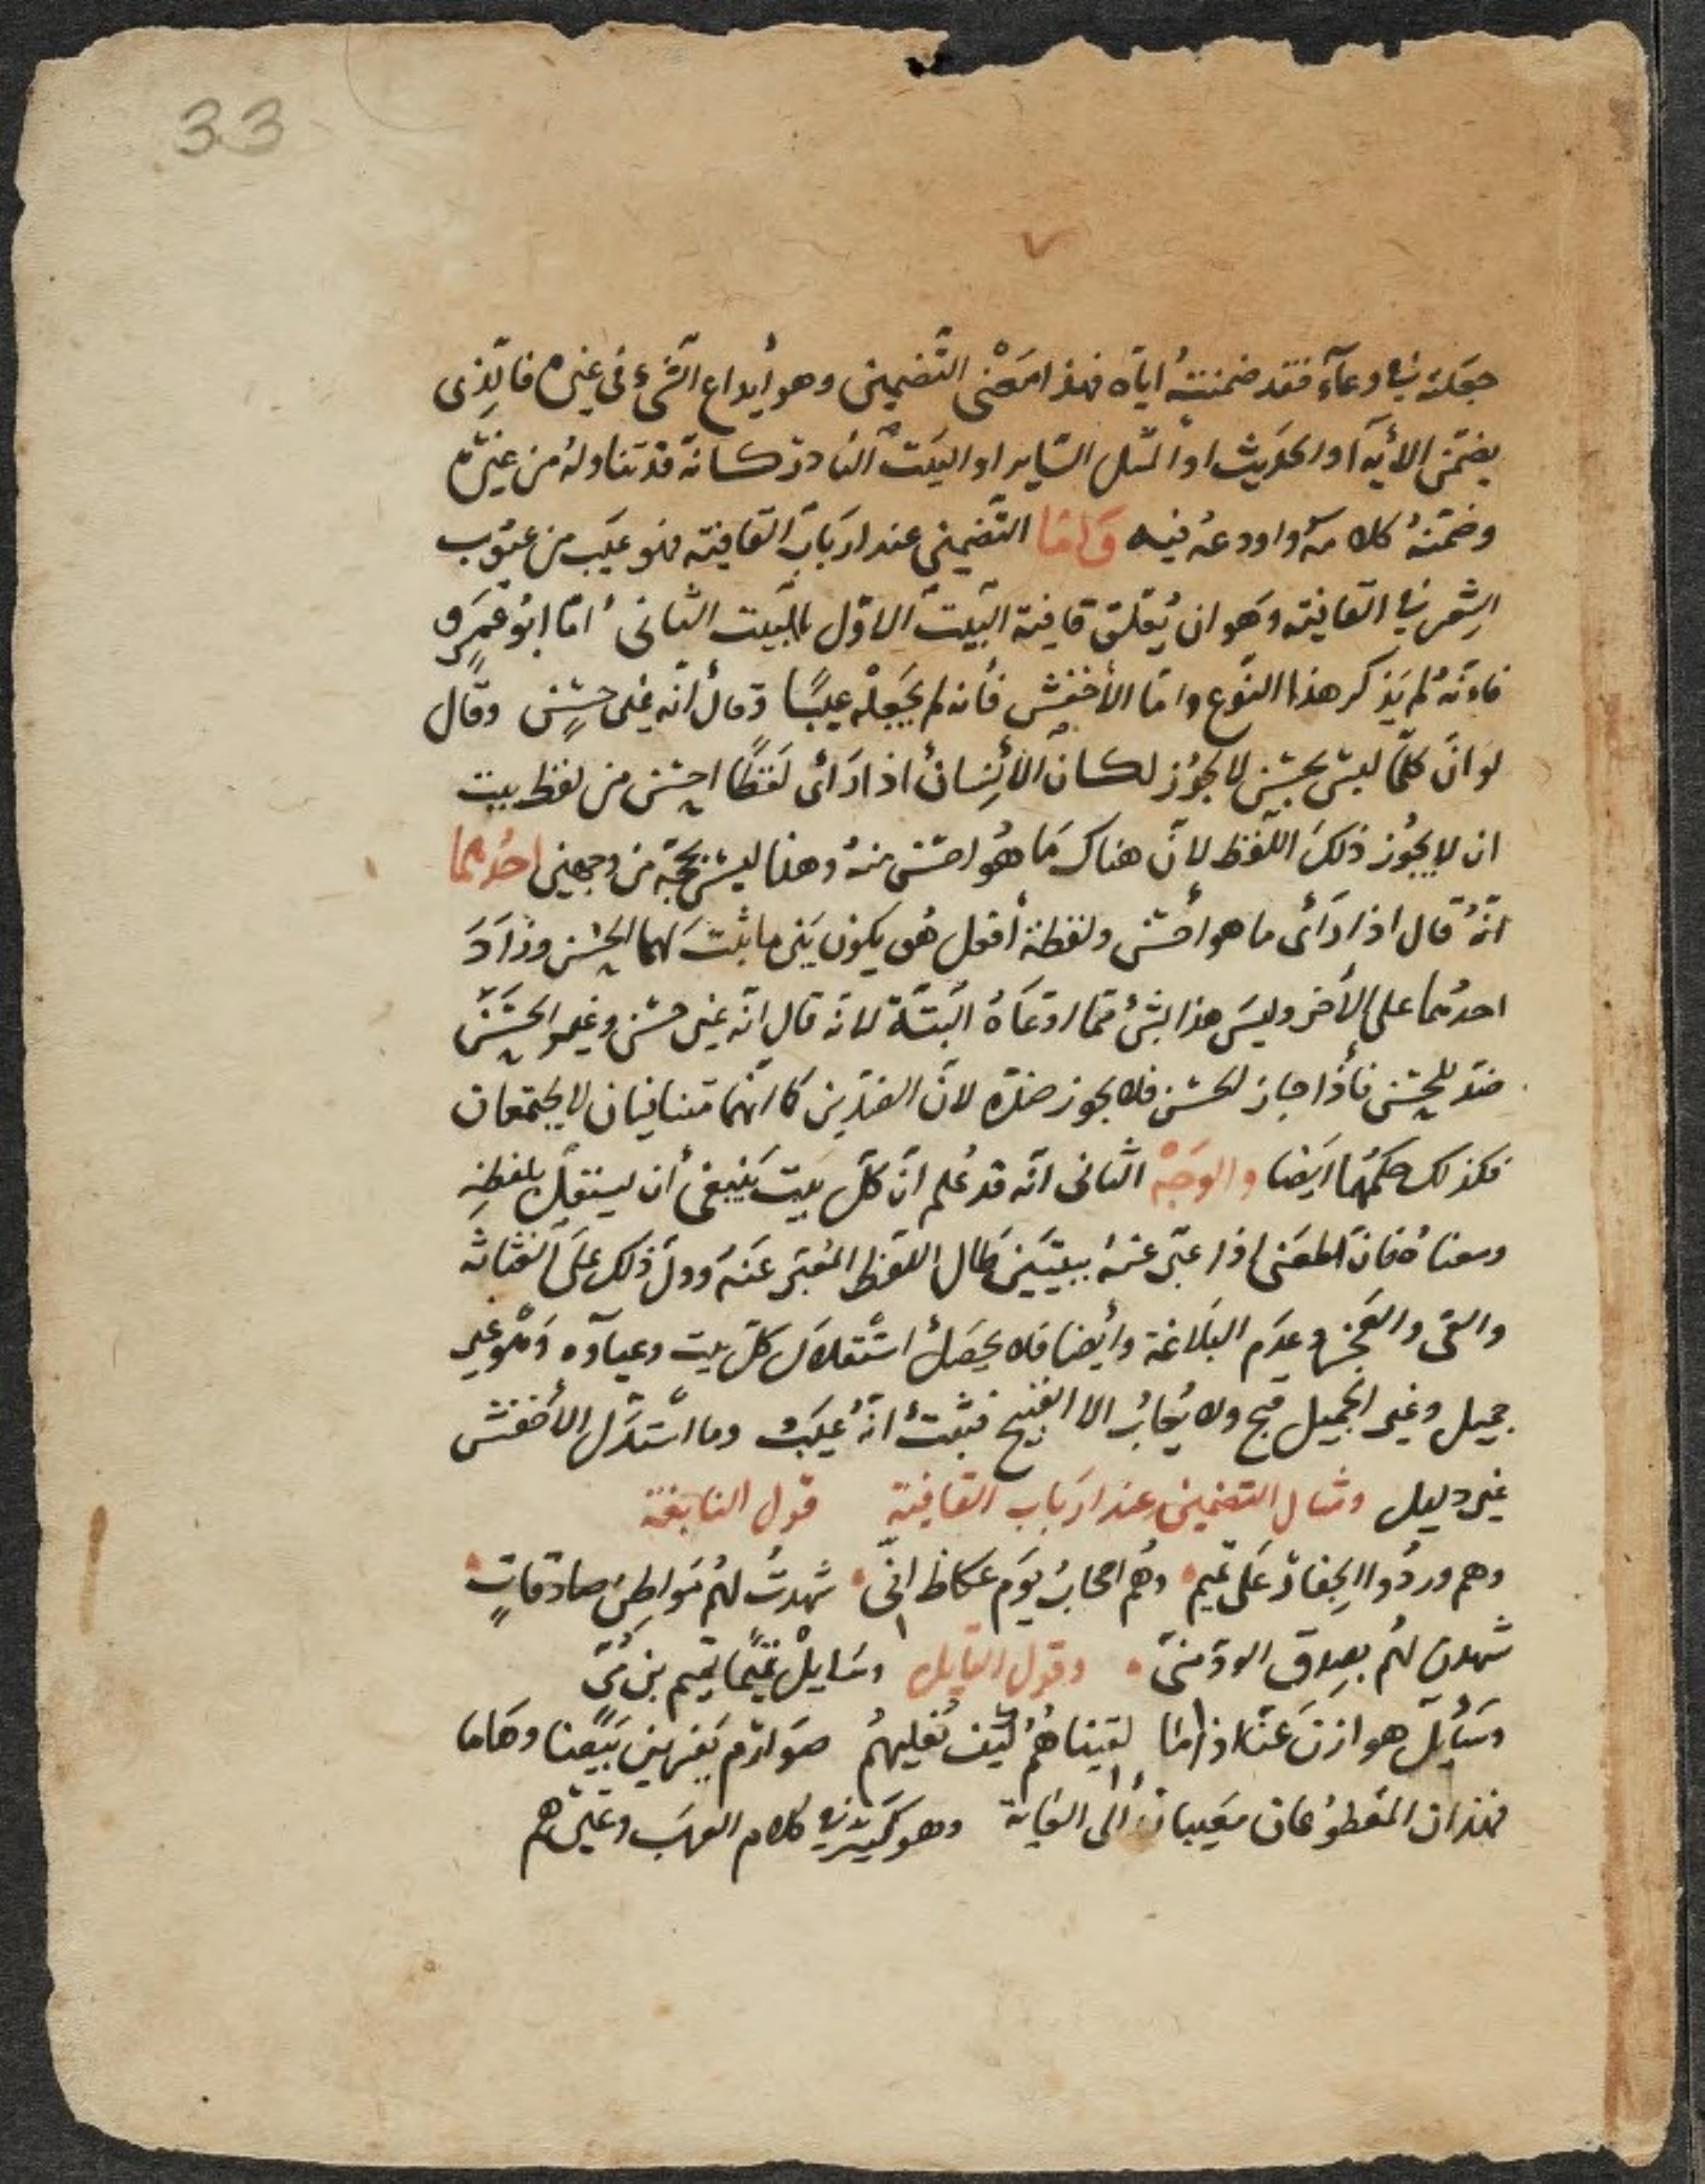 33
جعلته في وعآء فقد ضمنته اياه فهذا معنى التضمين وهو أيداع الشيء في غيره فالذى
يضمن الأية او الحديث او المثل الساير او البيت النادر كانه قد تناوله من غيره
وضمنه كلامه واودعه فيه واما التضمين عند ارباب القافية فهو عيب من عيوب
الشعر في القافية وهو ان يعلق قافية البيت الاول بالبيت الثانى اما ابو عمرو
فانه لم يذكر هذا النوع واما الأخفش فأنه لم يجعله عيبًا وقال أنه غير حسن وقال
لو ان كلما ليس بحسن لا يجوز لكان الأنسان اذا رأى لفظًا احسن من لفظ بيت
ان لا يجوز ذلك اللفظ لان هناك ما هو احسن منه وهذا ليس بحجة من وجهين احدهما
انه قال اذا رأى ما هو أحسن ولفظة أفعل هى يكون بين ما ثبت لهما الحسن وزاد
احدهما على الأخر وليس هذا بشئ مما ادعاه البتة لانه قال انه غير حسن وغير الحسن
ضد للحسن فأذا جاز الحسن فلا يجوز ضده لان الضدين كما انهما متنافيان لا يجتمعان
فكذلك حكمهما ايضا والوجه الثانى انه قد علم ان كل بيت ينبغى أن يستقل بلفظه
ومعناه فان المعنى اذا عبر عنه ببيتين طال اللفظ المعبر عنه ودل ذلك على
والعى والعجز وعدم البلاغة وأيضا فلا يحصل استقلال كل بيت وهو غير
جميل وغير الجميل قبيح ولا يعاب الا القبيح فثبت أنه عيب وما استدل الأخفش
غير دليل ومثال التضمين عند ارباب القافية قول النابغة
وهم وردوا الجفار على تميم وهم اصحاب يوم عكاظ انى شهدت لهم مواطن صادقاتٍ
شهدن لهم بصدق الود منى وقول القايل وسايل تميمًا تميم بن مر
وسأيل هوازن عنا اذا ما لقيناهم كيف نعليهم صوارم يفرين بيضا وهاما
فهذان المقطوعان معيبان الى الغاية وهو كثير في كلام العرب وغيرهم